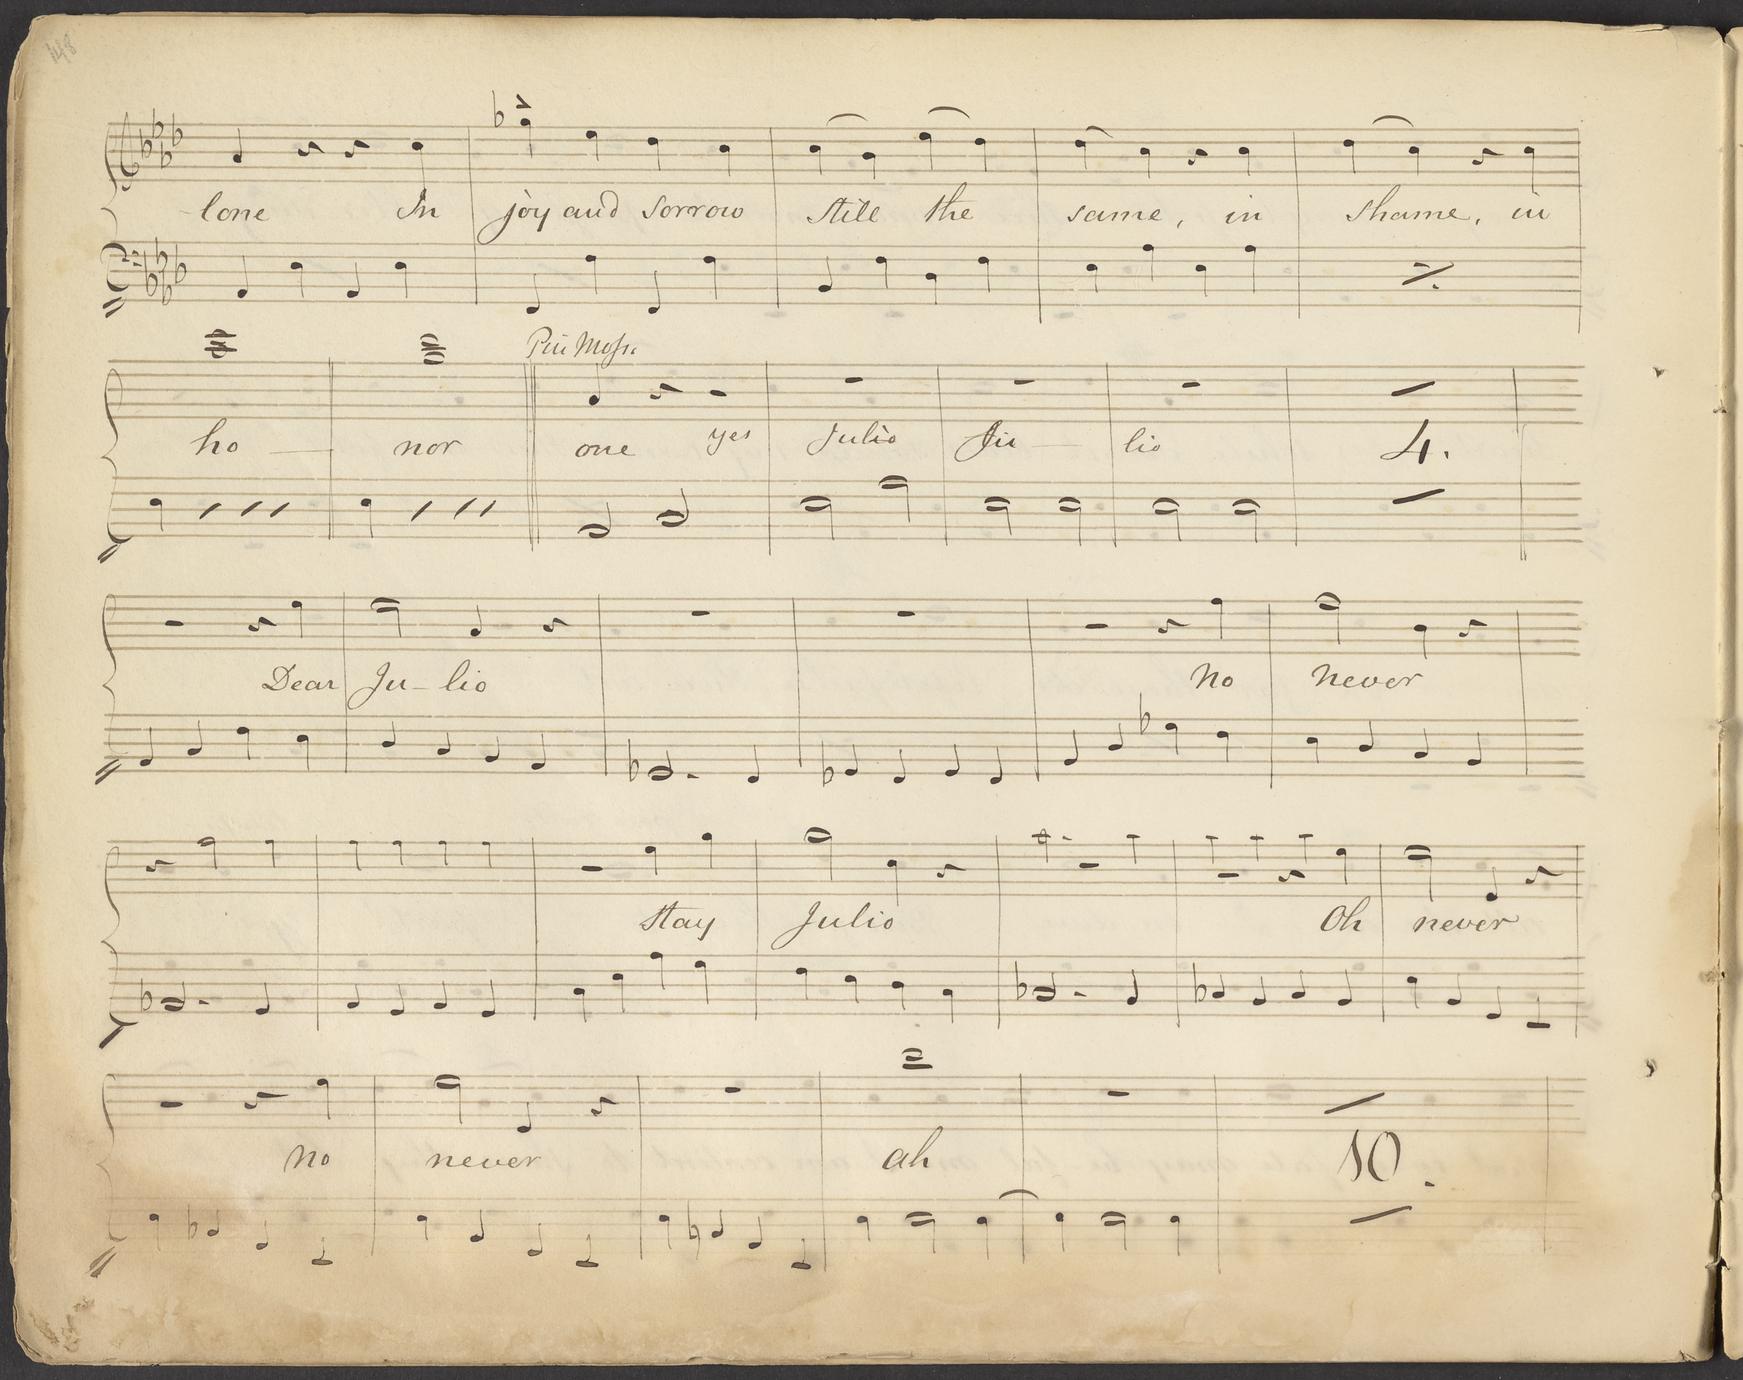 148
lone In joy and sorrow still the same, in shame, in
Piu Mosso
ho — nor one yes Julio Ju — lio 4.
Dear Ju - lio no never
stay Julio Oh never
no never ah 10.